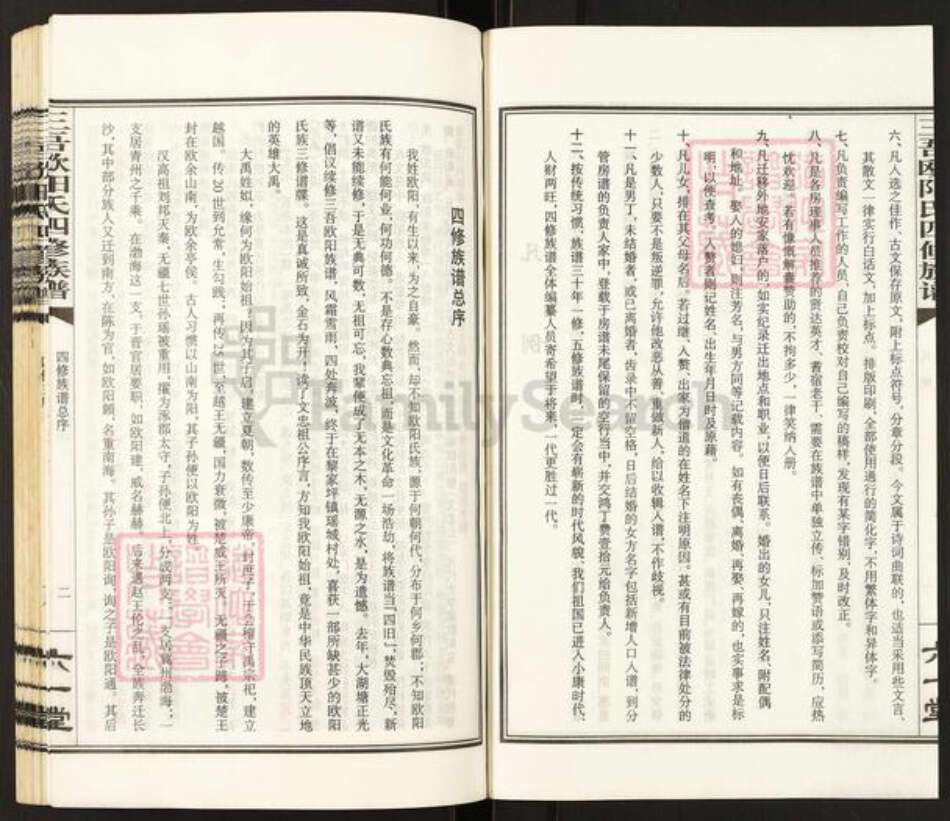 六、凡人选之佳作、古文保存原文，附上标点符号，分章分段。今文属于诗词曲联的，也适当采用些文言、
其散文一律实行白话文，加上标点。排版印刷，全部使用通行的简化字，不用繁体字和异体字。
七、凡负责编写工作的人员，自己负责校对自己编写的稿样，发现有某字错别，及时改正。
八、其是各房理事人员推荐的贤达英才、耆宿老干，需要在族谱中单独立传、标加赞语或添写简历，应热
忱欢迎。若有慷慨解囊赞助的，不拘多少，一律笑纳入册。
九、凡迁移外地安家落户的，如实纪录迁出地点和职业，以便日后联系。婚出的女儿，只注姓名、附配偶
和地址。娶人的媳妇，则注芳名，与男方同等记载内容。如有丧偶、离婚、再娶、再嫁的，也实事求是标
明，以便查考。入赘者则记姓名、出生年月日时及原藉。
十、凡儿女，排在其父母名后。若过继、入赘、出家为僧道的在姓名下注明原因。甚或有目前被法律处分的
少数人，只要不是叛逆罪，允许他改恶从善、重做新人，给以收辑入谱，不作歧视。
十一、凡是男丁，未结婚者，或已离婚者，齿录中不留空格，日后结婚的女方名字包括新增人口入谱，到分
管房谱的负责人家中，登载于房谱末尾保留的空行当中，并交鸿丁费壹拾元给负责人。
十二、按传统习惯，族谱三十年一修，五修族谱时，一定会有崭新的时代风貌，我们祖国已进入小康时代、
人财两旺，四修族谱全体编纂人员寄希望于将来，一代更胜过一代。
三吾欧阳氏四修族谱
六一堂
四修族谱总序
我姓欧阳，有生以来，为之自豪。然而，却不知欧阳氏族，源于何朝何代，分布于何乡何郡；不知欧阳
氏族有何能何业，何功何德。不是存心数典忘祖，而是文化革命一场浩劫，将族谱当「四旧」，焚毁殆尽，新
谱又未能续修，于是无典可数，无祖可忘，我辈便成了无本之木，无源之水，是为遗憾。去年，大湖塘正光
等，倡议续修三吾欧阳族谱，风霜雪雨，四处奔波，终于在黎家坪镇瑶城村处，喜获一部所缺甚少的欧阳
氏族三修谱牒。这是真诚所致，金石为开，读了文忠祖公序言，方知我欧阳始祖，竟是中华民族顶天立地
的英雄大禹。
大禹姓姒，缘何为欧阳始祖？因为其子启，建立夏朝，数传至少康帝，封庶子，于会稽守禹宗祀，建立
越国。传20世到允常，生勾践；再传25世，至越王无疆，国力衰微，被楚威王所灭。无疆之子蹄，被楚王
封在欧余山南，为欧余亭侯。古人习惯以山南为阳，其子孙便以欧阳为姓。
汉高祖刘邦灭秦，无疆七世孙瑶被重用，擢为涿郡太守，子孙便北上，分成两支，一支居冀州渤海；一
支居青州之千乘。在渤海这一支，于晋官居要职，如欧阳建，威名赫赫，后来遇赵王伦之乱，全族奔迁长
沙，其中部分族人又迁到南方，在陈为官，如欧阳頠，名重南海。其孙子是欧阳询，询之子是欧阳通。其后
三吾欧阳氏四修族谱
四修族谱总序
二
六一堂
FamilySearch